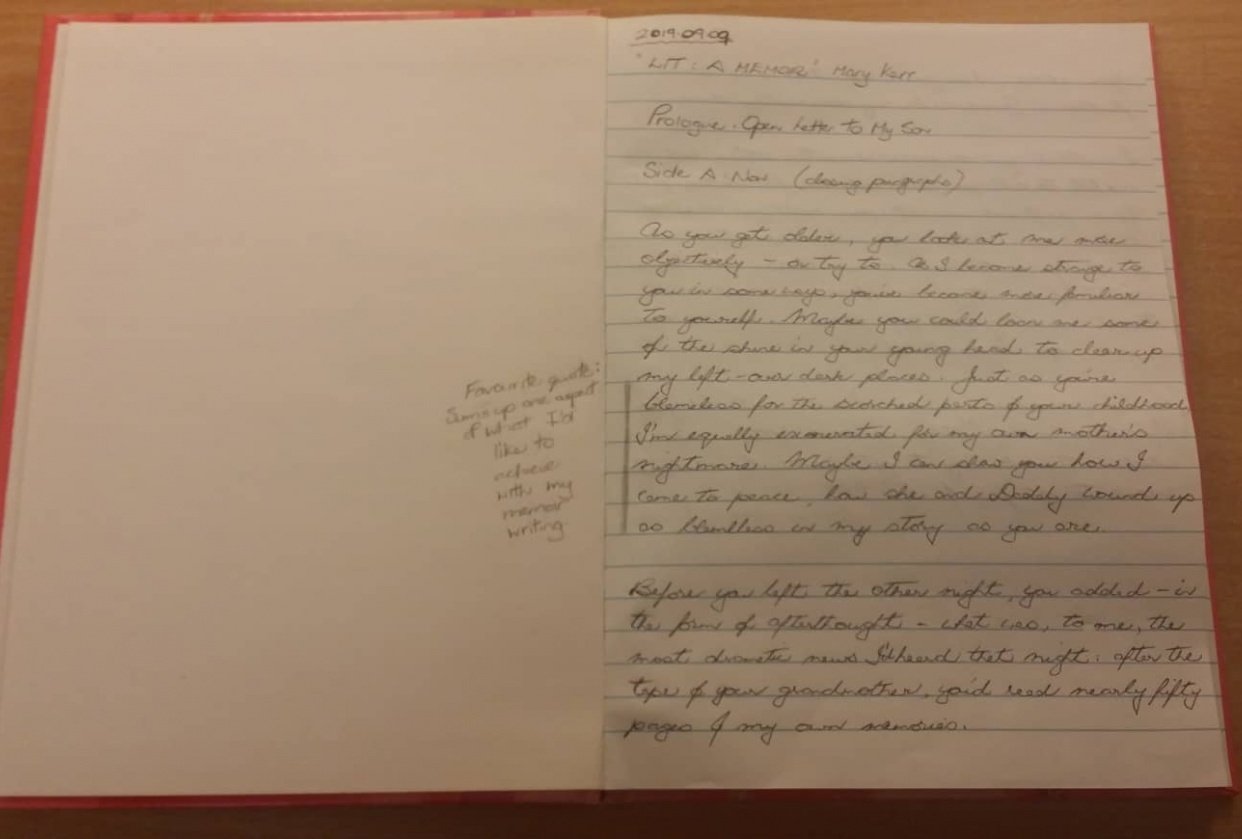 Favourite quote:
Sums up one aspect
of what I'd
like to
achieve
with my
memoir
writing.
2019.09.09
"LIT: A MEMOIR" Mary Karr
Prologue. Open Letter to My Son
Side A: Now (closing paragraphs)
As you get older, you look at me more
objectively – or try to. As I become strange to
you in some ways, you've become more familiar
to yourself. Maybe you could loan me some
of the shine in your young head to clear up
my left-over dark places. Just as you're
blameless for the scorched parts of your childhood,
I'm equally exonerated for my own mother's
nightmare. Maybe I can show you how I
came to peace, how she and Daddy wound up
as blameless in my story as you are.
Before you left the other night, you added – in
the form of afterthought – what was, to me, the
most dramatic news I'd heard that night: after the
tape of your grandmother, you'd read nearly fifty
pages of my own memories.